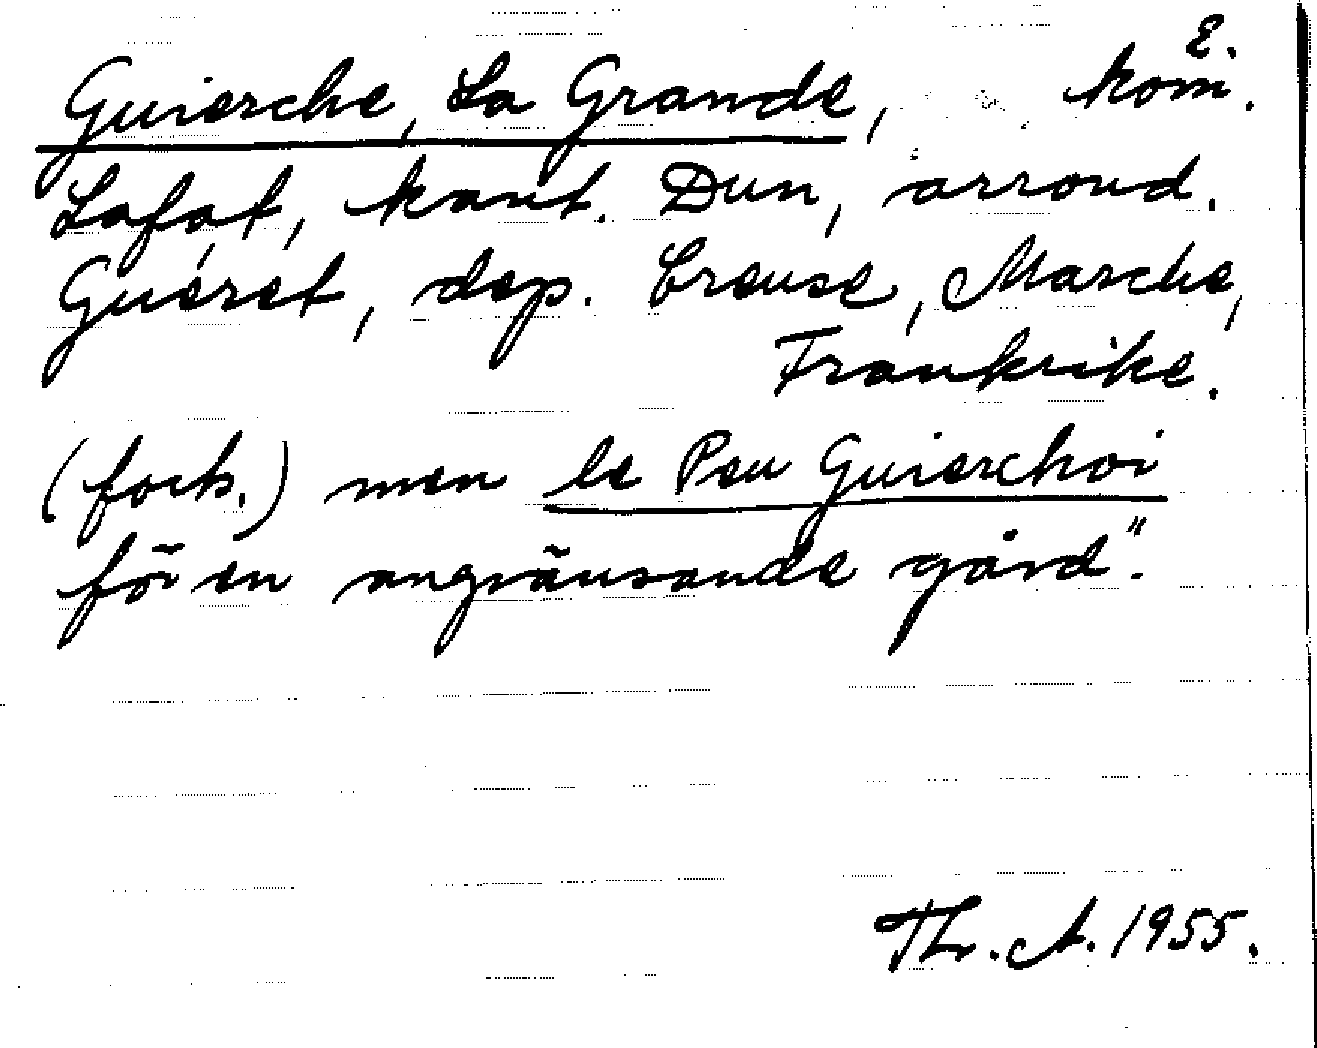 2.
Guierche, La Grande, kom̄.
Lafat, kant. Dun, arrond.
Guéret, dep. Creuse, Marche,
Frankrike.
(forts.) men le Peu Guierchoi
för en angränsande gård".
Th. A. 1955.